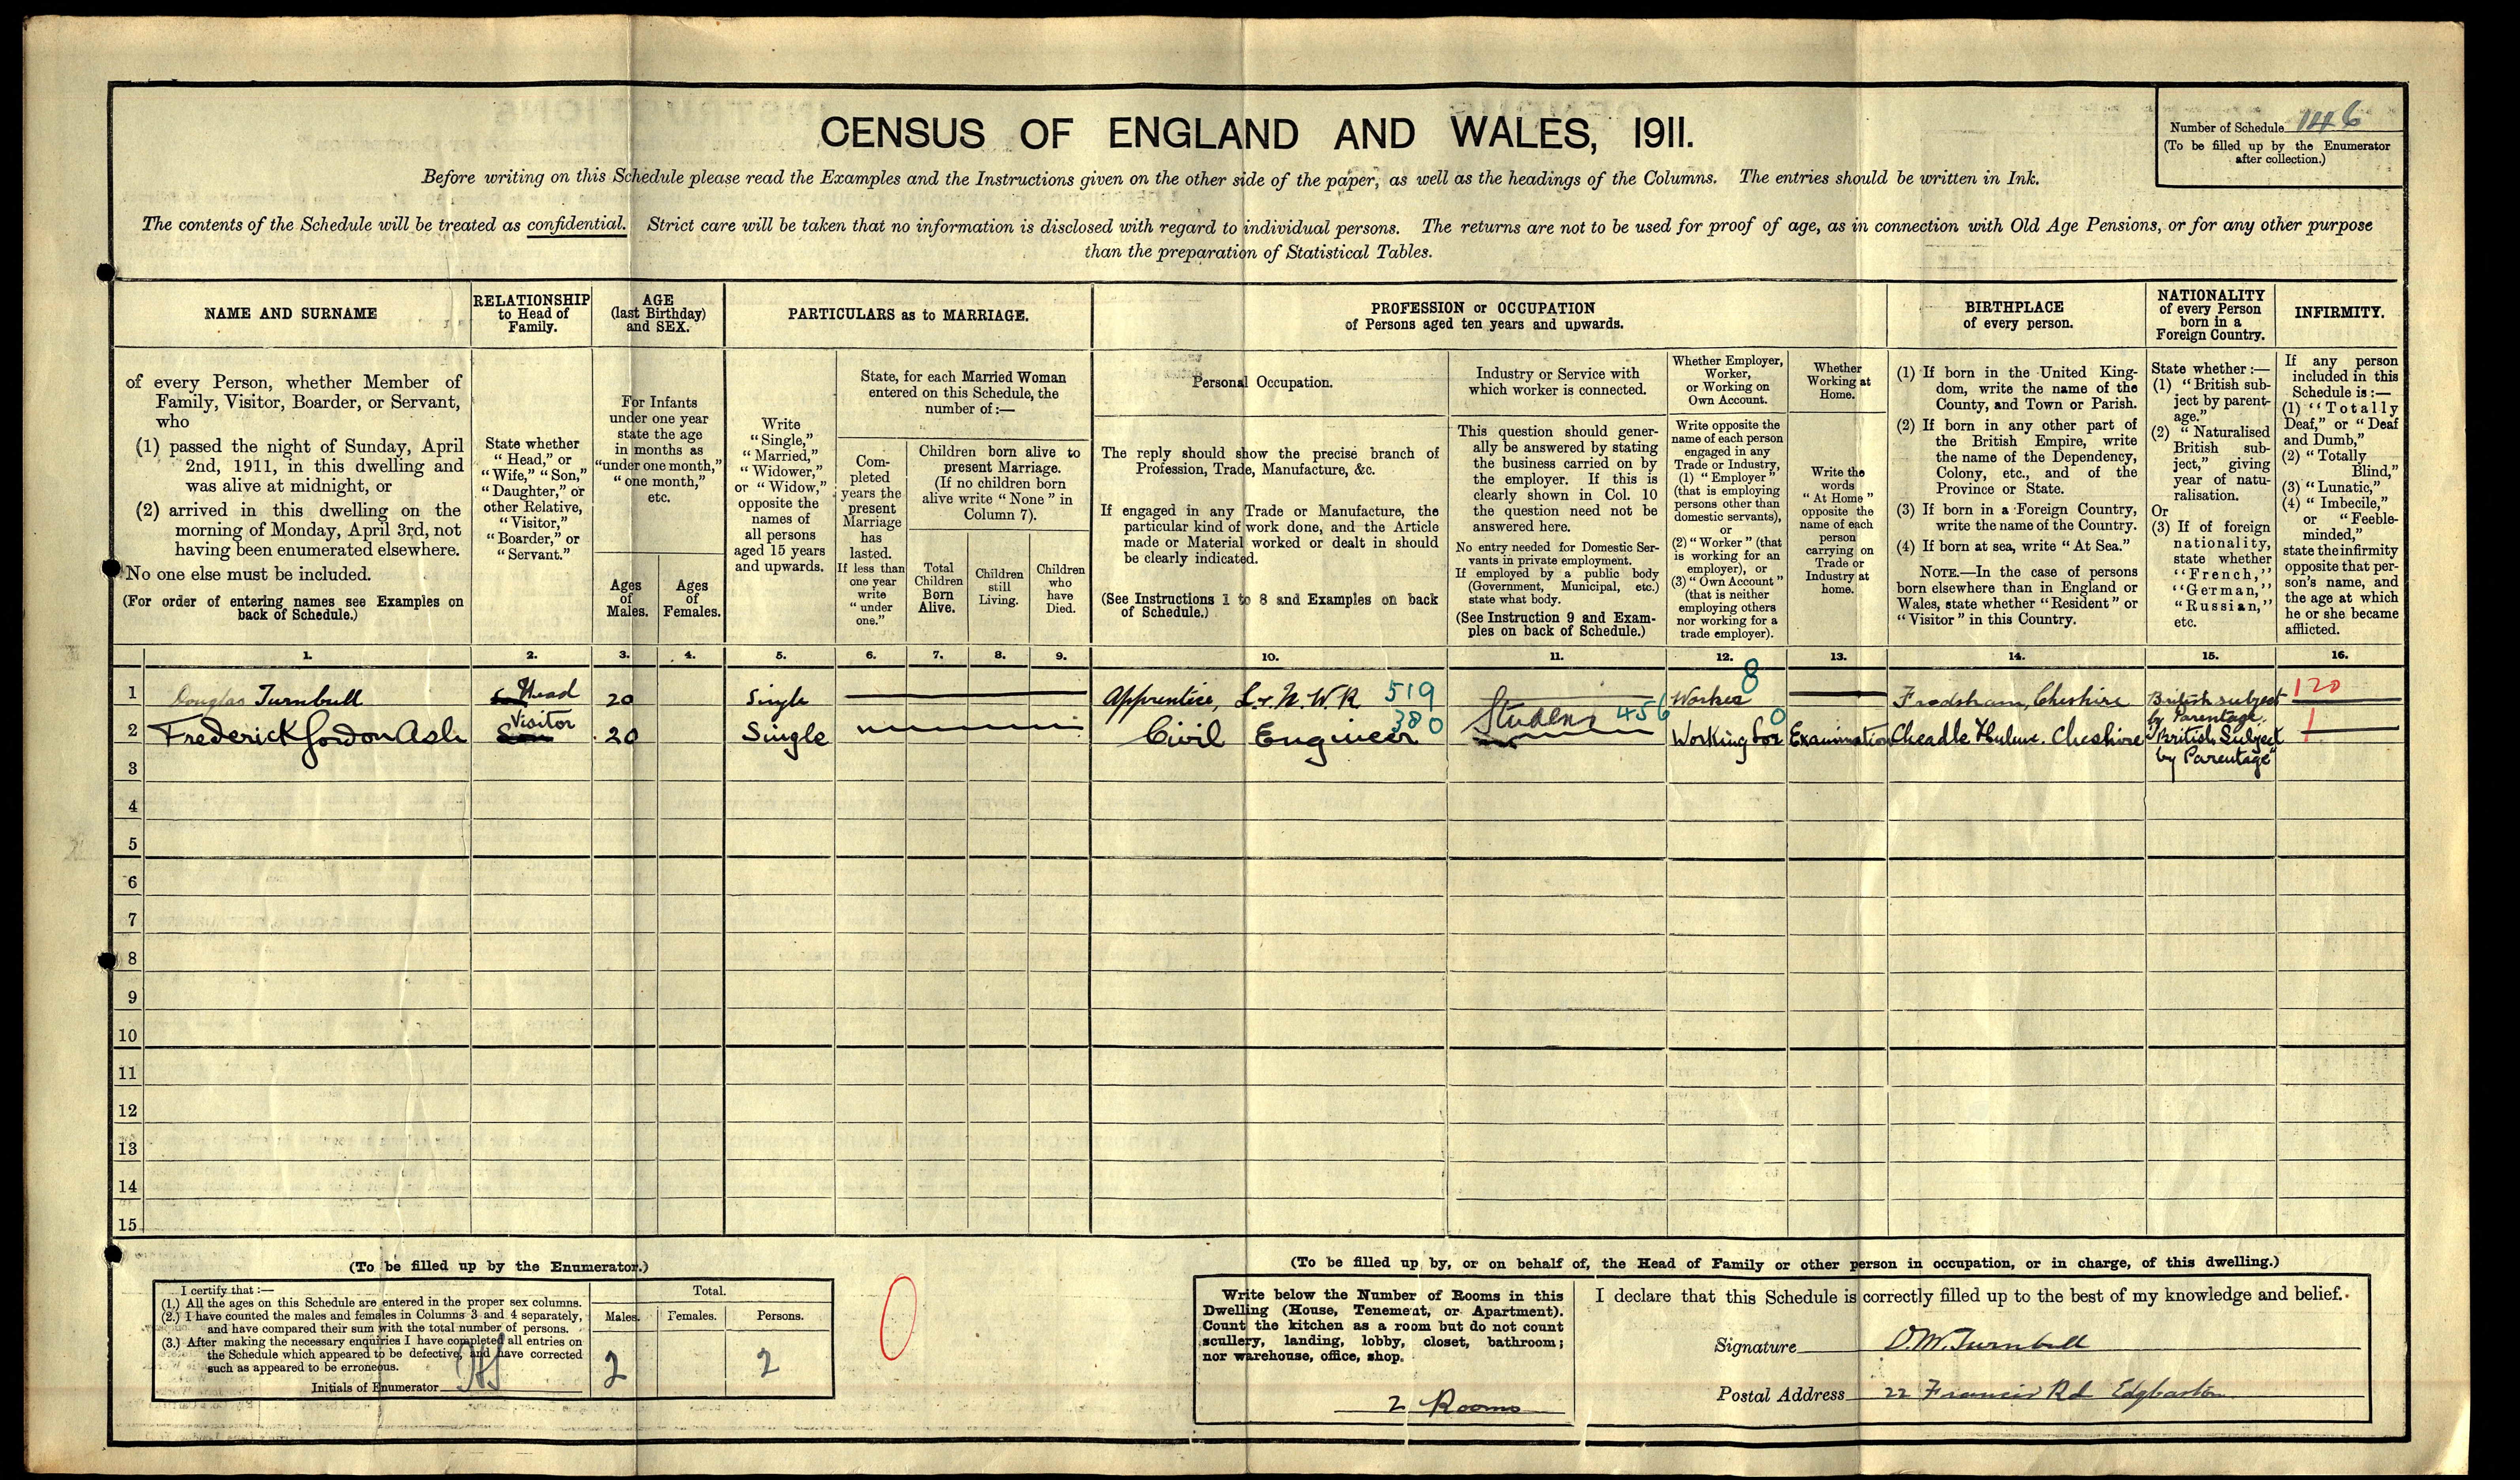 CENSUS OF ENGLAND AND WALES, 1911.
Number of Schedule 146
(To be filled up by the Enumerator
after collection.)
Before writing on this Schedule please read the Examples and the Instructions given on the other side of the paper, as well as the headings of the Columns. The entries should be written in Ink.
The contents of the Schedule will be treated as confidential. Strict care will be taken that no information is disclosed with regard to individual persons. The returns are not to be used for proof of age, as in connection with Old Age Pensions, or for any other purpose
than the preparation of Statistical Tables.
NAME AND SURNAME
of every Person, whether Member of
Family, Visitor, Boarder, or Servant,
who
(1) passed the night of Sunday, April
2nd, 1911, in this dwelling and
was alive at midnight, or
(2) arrived in this dwelling on the
morning of Monday, April 3rd, not
having been enumerated elsewhere.
No one else must be included.
(For order of entering names see Examples on
back of Schedule.)
RELATIONSHIP
to Head of
Family.
State whether
"Head," or
"Wife," "Son,"
"Daughter," or
other Relative,
"Visitor,"
"Boarder," or
"Servant."
AGE
(last Birthday)
and SEX.
For Infants
under one year
state the age
in months as
"under one month,"
"one month,"
etc.
Ages
of
Males.
Ages
of
Females.
PARTICULARS as to MARRIAGE.
Write
"Single,"
"Married,"
"Widower,"
or "Widow,"
opposite the
names of
all persons
aged 15 years
and upwards.
State, for each Married Woman
entered on this Schedule, the
number of:—
Com-
pleted
years the
present
Marriage
has
lasted.
If less than
one year
write
"under
one."
Children born alive to
present Marriage.
(If no children born
alive write "None" in
Column 7).
Total
Children
Born
Alive.
Children
still
Living.
Children
who
have
Died.
PROFESSION or OCCUPATION
of Persons aged ten years and upwards.
Personal Occupation.
The reply should show the precise branch of
Profession, Trade, Manufacture, &c.
If engaged in any Trade or Manufacture, the
particular kind of work done, and the Article
made or Material worked or dealt in should
be clearly indicated.
(See Instructions 1 to 8 and Examples on back
of Schedule.)
Industry or Service with
which worker is connected.
This question should gener-
ally be answered by stating
the business carried on by
the employer. If this is
clearly shown in Col. 10
the question need not be
answered here.
No entry needed for Domestic Ser-
vants in private employment.
If employed by a public body
(Government, Municipal, etc.)
state what body.
(See Instruction 9 and Exam-
ples on back of Schedule.)
Whether Employer,
Worker,
or Working on
Own Account.
Write opposite the
name of each person
engaged in any
Trade or Industry,
(1) "Employer"
(that is employing
persons other than
domestic servants),
or
(2) "Worker" (that
is working for an
employer), or
(3) "Own Account"
(that is neither
employing others
nor working for a
trade employer).
Whether
Working at
Home.
Write the
words
"At Home"
opposite the
name of each
person
carrying on
Trade or
Industry at
home.
BIRTHPLACE
of every person.
(1) If born in the United King-
dom, write the name of the
County, and Town or Parish.
(2) If born in any other part of
the British Empire, write
the name of the Dependency,
Colony, etc., and of the
Province or State.
(3) If born in a Foreign Country,
write the name of the Country.
(4) If born at sea, write "At Sea."
NOTE.—In the case of persons
born elsewhere than in England or
Wales, state whether "Resident" or
"Visitor" in this Country.
NATIONALITY
of every Person
born in a
Foreign Country.
State whether:—
(1) "British sub-
ject by parent-
age."
(2) "Naturalised
British sub-
ject," giving
year of natu-
ralisation.
Or
(3) If of foreign
nationality,
state whether
"French,"
"German,"
"Russian,"
etc.
INFIRMITY.
If any person
included in this
Schedule is:—
(1) "Totally
Deaf," or "Deaf
and Dumb,"
(2) "Totally
Blind,"
(3) "Lunatic,"
(4) "Imbecile,"
or "Feeble-
minded,"
state the infirmity
opposite that per-
son's name, and
the age at which
he or she became
afflicted.
1. 2. 3. 4. 5. 6. 7. 8. 9. 10. 11. 12. 13. 14. 15. 16.
1 Douglas Turnbull Head 20 Single Apprentice, L. & N. W. R 519 Worker 8 Frodsham, Cheshire British subject by Parentage. 120
2 Frederick Gordon Ash Visitor Son 20 Single Civil Engineer 380 Student 456 Working for 0 Examination Cheadle Hulme. Cheshire "British Subject by Parentage" 1
3
4
5
6
7
8
9
10
11
12
13
14
15
(To be filled up by the Enumerator.)
I certify that:—
(1.) All the ages on this Schedule are entered in the proper sex columns.
(2.) I have counted the males and females in Columns 3 and 4 separately,
and have compared their sum with the total number of persons.
(3.) After making the necessary enquiries I have completed all entries on
the Schedule which appeared to be defective, and have corrected
such as appeared to be erroneous.
Initials of Enumerator
Total.
Males. Females. Persons.
2 2
0
(To be filled up by, or on behalf of, the Head of Family or other person in occupation, or in charge, of this dwelling.)
Write below the Number of Rooms in this
Dwelling (House, Tenement, or Apartment).
Count the kitchen as a room but do not count
scullery, landing, lobby, closet, bathroom;
nor warehouse, office, shop.
2 Rooms
I declare that this Schedule is correctly filled up to the best of my knowledge and belief.
Signature D.W. Turnbull
Postal Address 22 Francis Rd Edgbaston